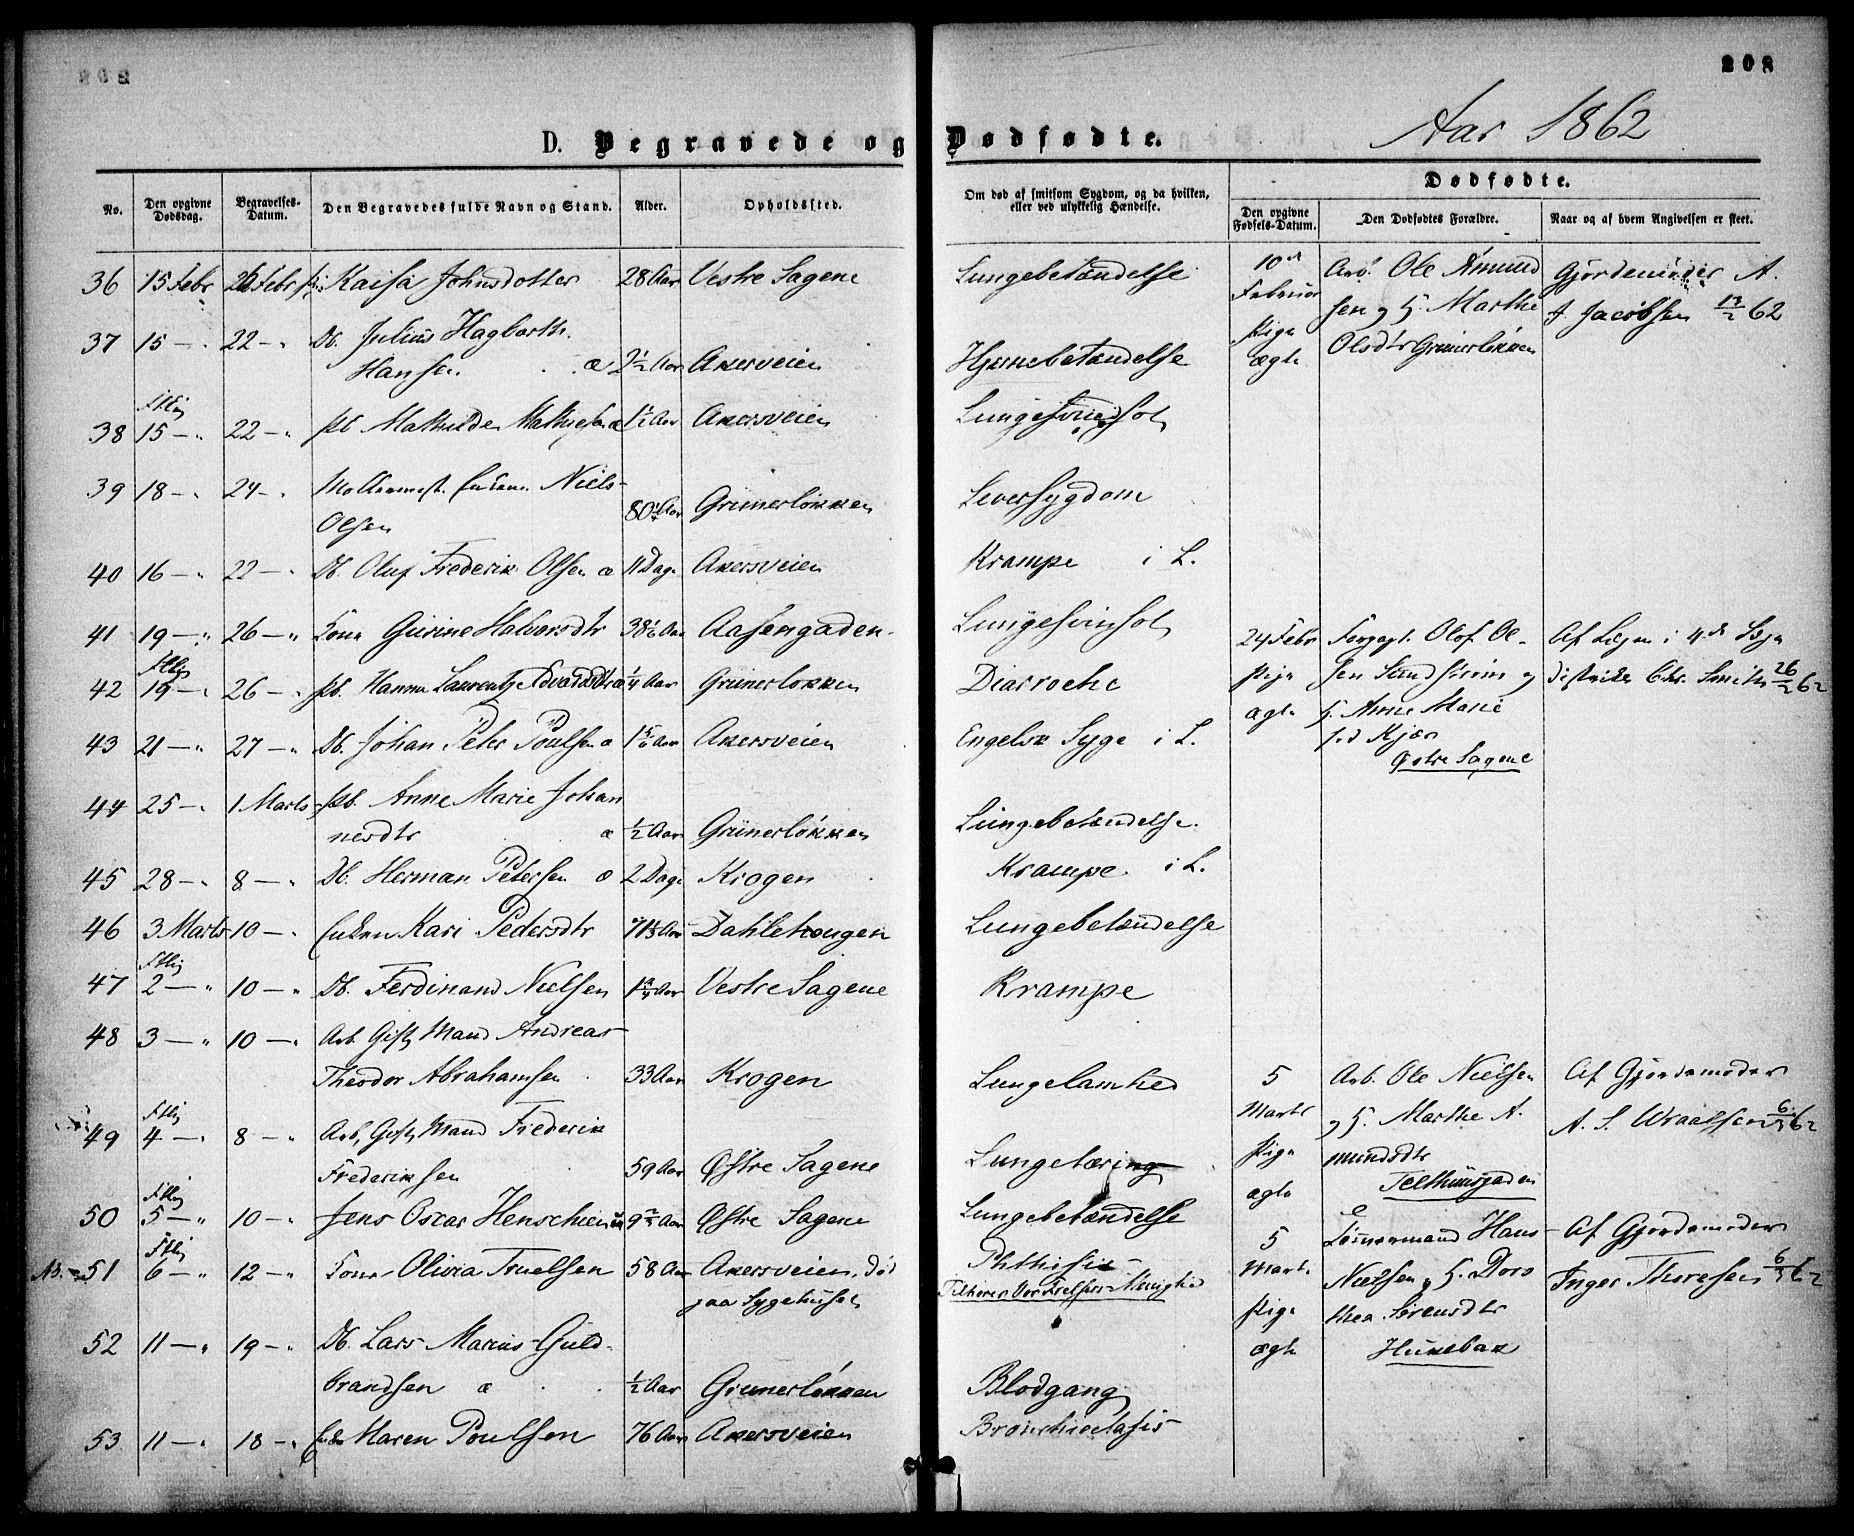 208
Aar 1862
D. Begravede og Dødfødte.
No. Den opgivne Dødsdag. Begravelses-Datum. Den Begravedes fulde Navn og Stand. Alder. Opholdssted. Om død af smitsom Sygdom, og da hvilken, eller ved ulykkelig Hændelse. Dødfødte.
Den opgivne Fødsels-Datum. Den Dødfødtes Forældre. Naar og af hvem Angivelsen er skeet.
36 15 Febr 26 Febr Kaisa Johnsdotter 28 Aar Vestre Sagene Lungebetændelse
37 15 — " 22 — " Db. Julius Hagbarth
Hansen æ 2 1/2 Aar Akersveien Hjernebetændelse
38 15 — " 22 — " Pb Mathilde Mathisen æ 1 1/2 Aar Akersveien Lungesvindsot
39 18 — " 24 — " Niels
Olsen 80 1/4 Aar Grünerløkken Leversygdom
40 16 — " 22 — " Db. Oluf Frederik Olsen æ 11 Dage Akersveien Krampe i L.
41 19 — " 26 — " Kone Gurine Halvorsdtr 38 1/6 Aar Aasengaden Lungesvinsot
42 19 — " 26 — " Pb. Hanna Laurentze Edvardsdtr æ 1/4 Aar Grünerløkken Diarroehe
43 21 — " 27 — " Db. Johan Peter Poulsen æ 1 5/6 Aar Akersveien Engelsk Syge i L.
44 25 — " 1 Marts Pb. Anne Marie Johan
nesdtr æ 1/2 Aar Grünerløkken Lungebetændelse.
45 28 — " 8 — " Db. Herman Petersen æ 2 Dage Krogen Krampe i L.
46 3 Marts 10 — " Enken Kari Pedersdtr Aar Dahlehougen Lungebetændelse
47 2 — " 10 — " Db. Ferdinand Nielsen 1 3/4 Aar Vestre Sagene Krampe
48 3 — " 10 — " Arb. Gift Mand Andreas
Theodor Abrahamsen 33 Aar Krogen Lungelamhed
49 4 — " 8 — " Arb. Gift Mand Frederik
Frederiksen 59 Aar Østre Sagene Lungetæring
50 5 — " 10 — " Jens Oscar Henschien 9 2/3 Aar Østre Sagene Lungebetændelse
NB. 51 6 — " 12 — " Kone Olivia Truelsen 58 Aar Akersveien, død Phthisis
paa Sygehuset Tilhører Vor Frelsers Menighed
52 11 — " 19 — " Db. Lars Marius Guld-
brandsen æ 1/2 Aar Grünerløkken Blodgang
53 11 — " 18 — " Maren Poulsen 76 Aar Akersveien Bronchiectasis
10de Arb. Ole Amund Gjordemoder A.
Februar sen og H. Marthe J. Jacobsen 13/2 62
Pige Olsdtr Grünerløkken
ægte
24 Febr Olof Ol- Af Lægen i 4de Læge
Pige sen og distrikt Chr. Smith 26/2 62
ægte H. Anne Marie
fød Kjær
Østre Sagene
5 Arb. Ole Nielsen Af Gjordemoder
Marts og H. Marthe A. A. S. Wraalsen 6/3 62
Pige mundsdtr
ægte Telthusgaden
5 Tømmermand Hans Af Gjordemoder
Marts Nielsen og H. Doro Inger Thoresen 6/3 62
Pige thea Sørensdtr
ægte Hukebak